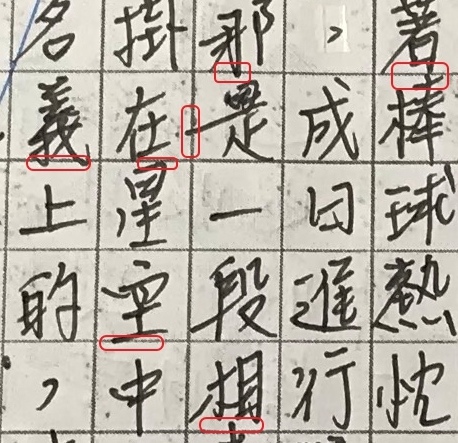 著棒球熱忱
，成日進行
那是一段相
掛在星空中
名義上的，